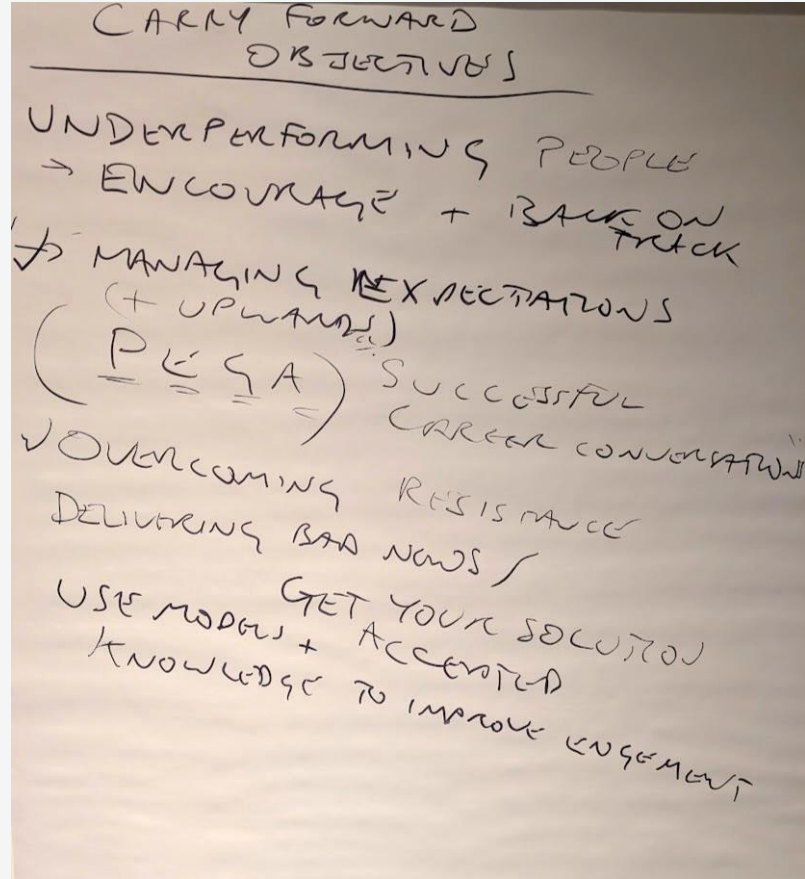 CARRY FORWARD
OBJECTIVES
UNDERPERFORMING PEOPLE
→ ENCOURAGE + BACK ON
TRACK
MANAGING EXPECTATIONS
(+ UPWARDS)
(PEGA) SUCCESSFUL
CAREER CONVERSATION
✓ OVERCOMING RESISTANCE
DELIVERING BAD NEWS /
GET YOUR SOLUTION
ACCEPTED
USE MODELS +
KNOWLEDGE TO IMPROVE ENGEMENT